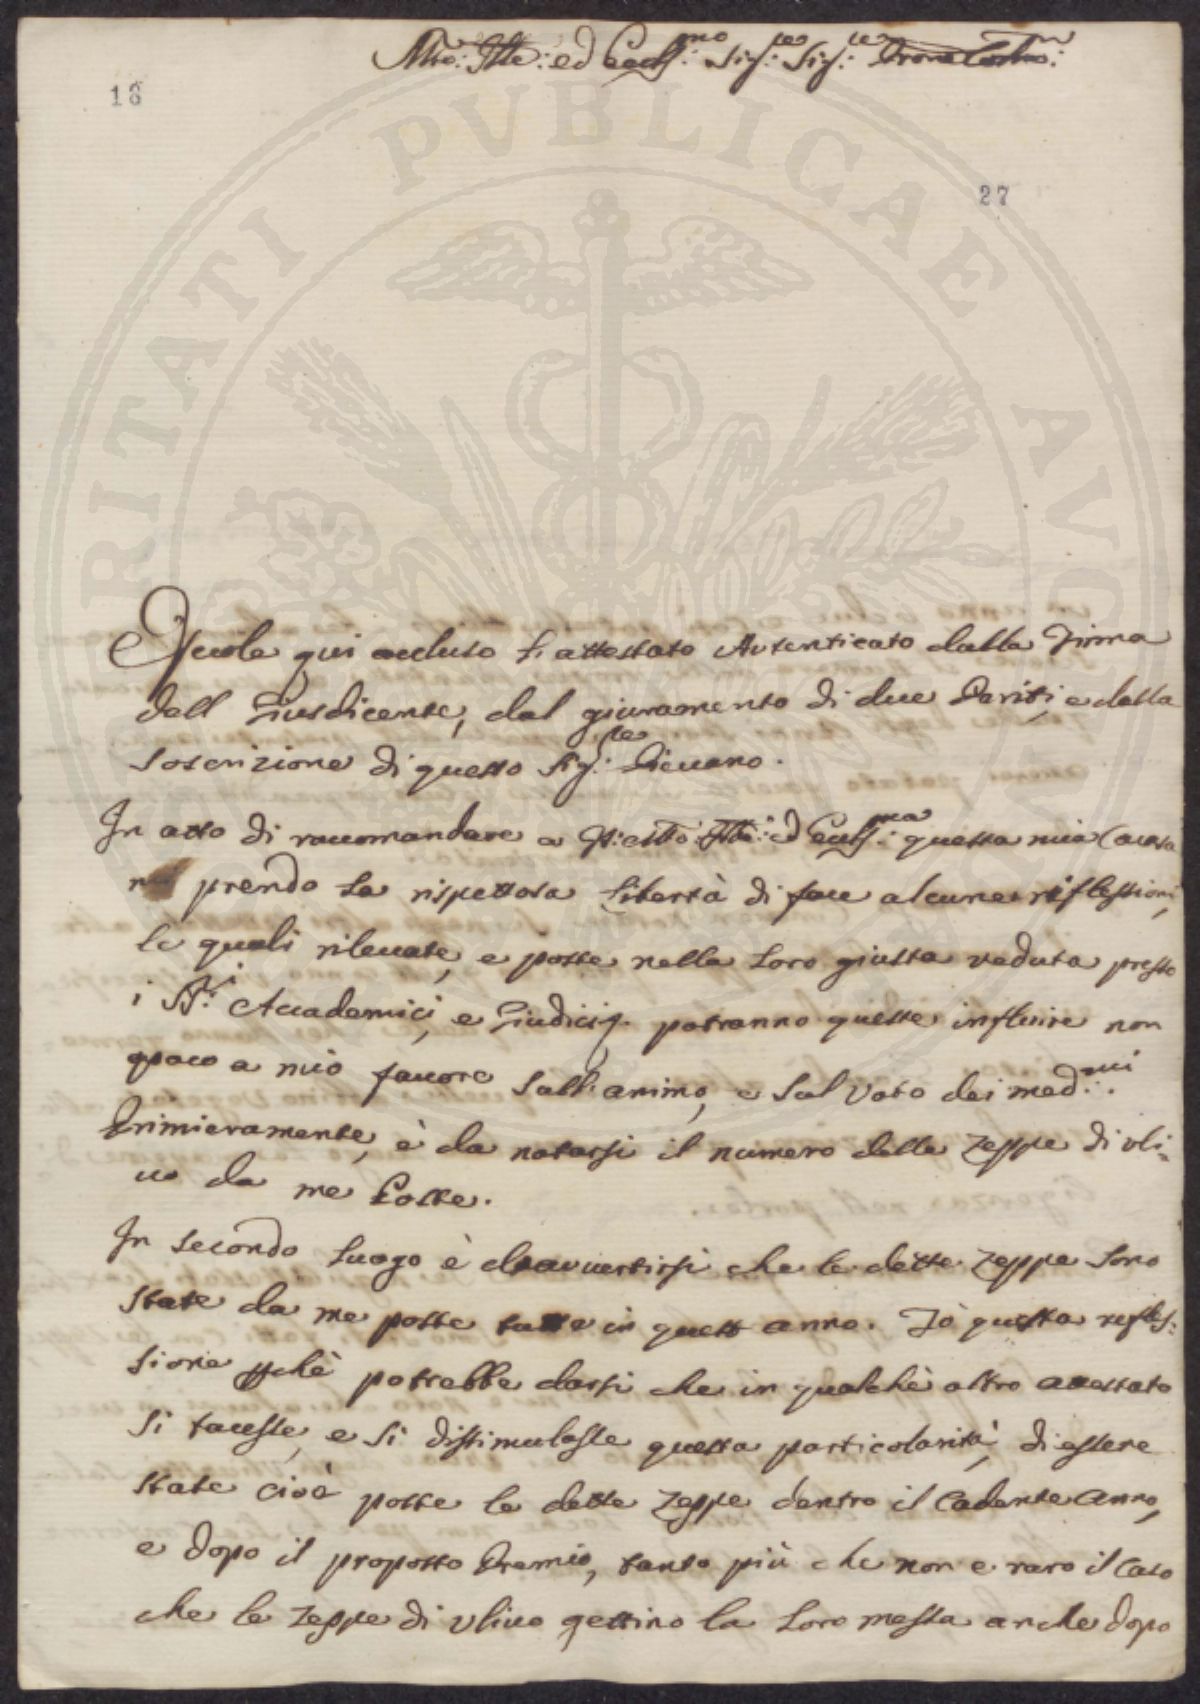 Mto: Ille: ed Eccll:mo Sig:re Sig:re Prone Colmo:
18
27
Eccole qui accluso L'attestato Autenticato dalla Firma
dell Giusdicente, dal giuramento di due Periti, e dalla
soscrizione di questo Sig:re Pievano.
In atto di raccomandare a V: Ill: ed Eccll:ma questa mia Causa
mi prendo La rispettosa Libertà di fare alcune riflessioni,
le quali rilevate, e poste nella Loro giusta veduta presso
i SS:ri Accademici, e Giudici, potranno queste influire non
poco a mio favore Sull'animo, e Sul Voto dei med:mi.
Primieramente, è da notarsi il numero delle Zeppe di Uli=
vo da me Poste.
In secondo Luogo è da avvertirsi che le dette Zeppe Sono
State da me poste tutte in quest anno. Fò questa rifles:
sione pchè potrebbe darsi che in qualchè altro attestato
Si tacesse, e Si dissimulasse questa particolarità, di essere
State cioè poste le dette Zeppe dentro il Cadente Anno,
e dopo il proposto Premio, tanto più che non e raro il Caso
che le Zeppe di Ulivo gettino la Loro messa anche dopo